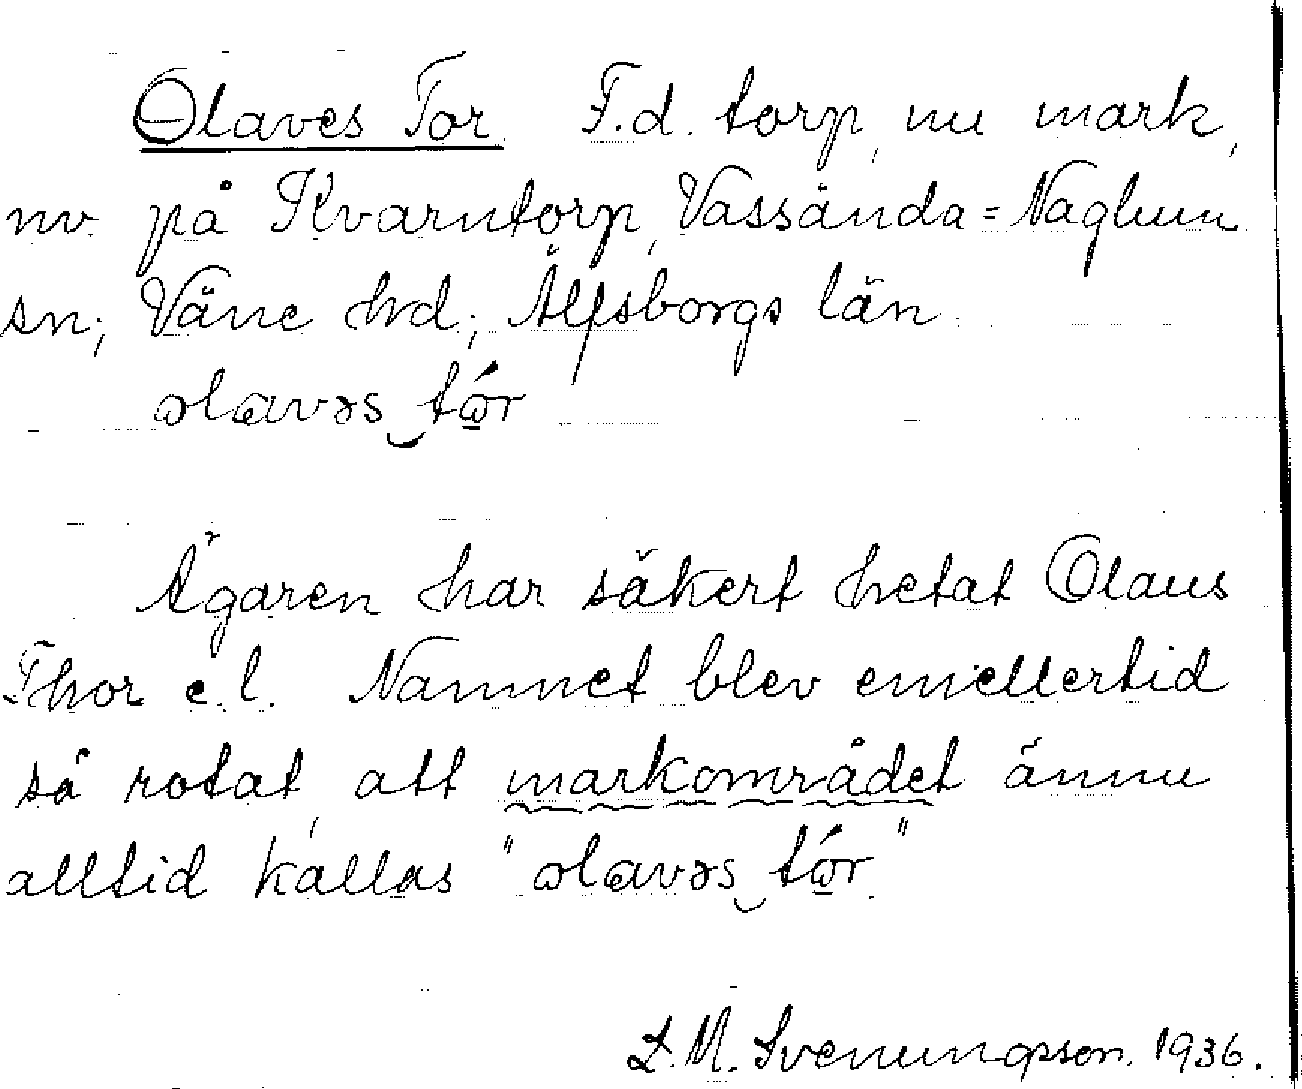 Olaves Tor. F.d. torp, nu mark,
nv. på Kvarntorp, Vassända=Naglum
sn; Väne hd; Älfsborgs län.
olavəs‿tór
Ägaren har säkert hetat Olaus
Thor e.l. Namnet blev emellertid
så rotat, att markområdet ännu
alltid kallas "olavəs‿tór."
L.M. Svenungsson. 1936.